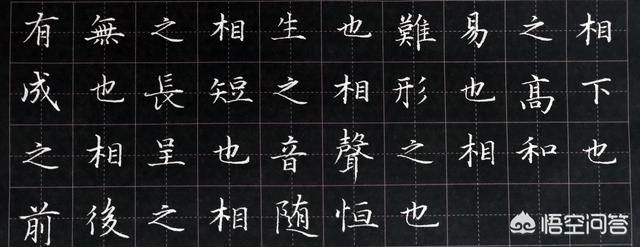 有無之相生也難易之相
成也長短之相形也髙下
之相呈也音聲之相和也
前後之相随恒也
悟空问答